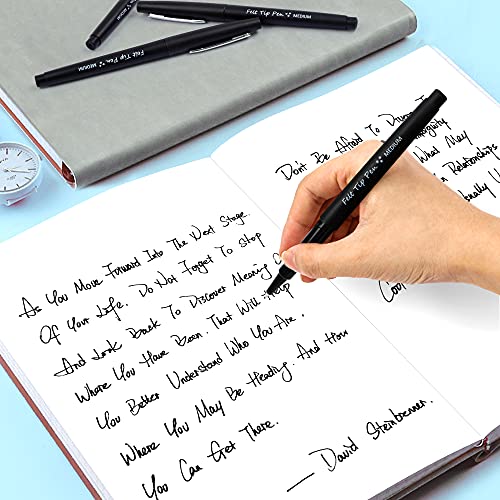 Felt Tip Pen MEDIUM
Felt Tip Pen MEDIUM
MEDIUM
As You Move Forward Into The Next Stage
Of Your Life. Do Not Forget To Stop
And Look Back To Discover Meaning
Where You Have Been. That Will Help
You Better Understand Who You Are,
Where You May Be Heading. And How
You Can Get There.
— David Steinbrenner.
Don't Be Afraid To
Ambiguity
What May
Relationships
Felt Tip Pen MEDIUM